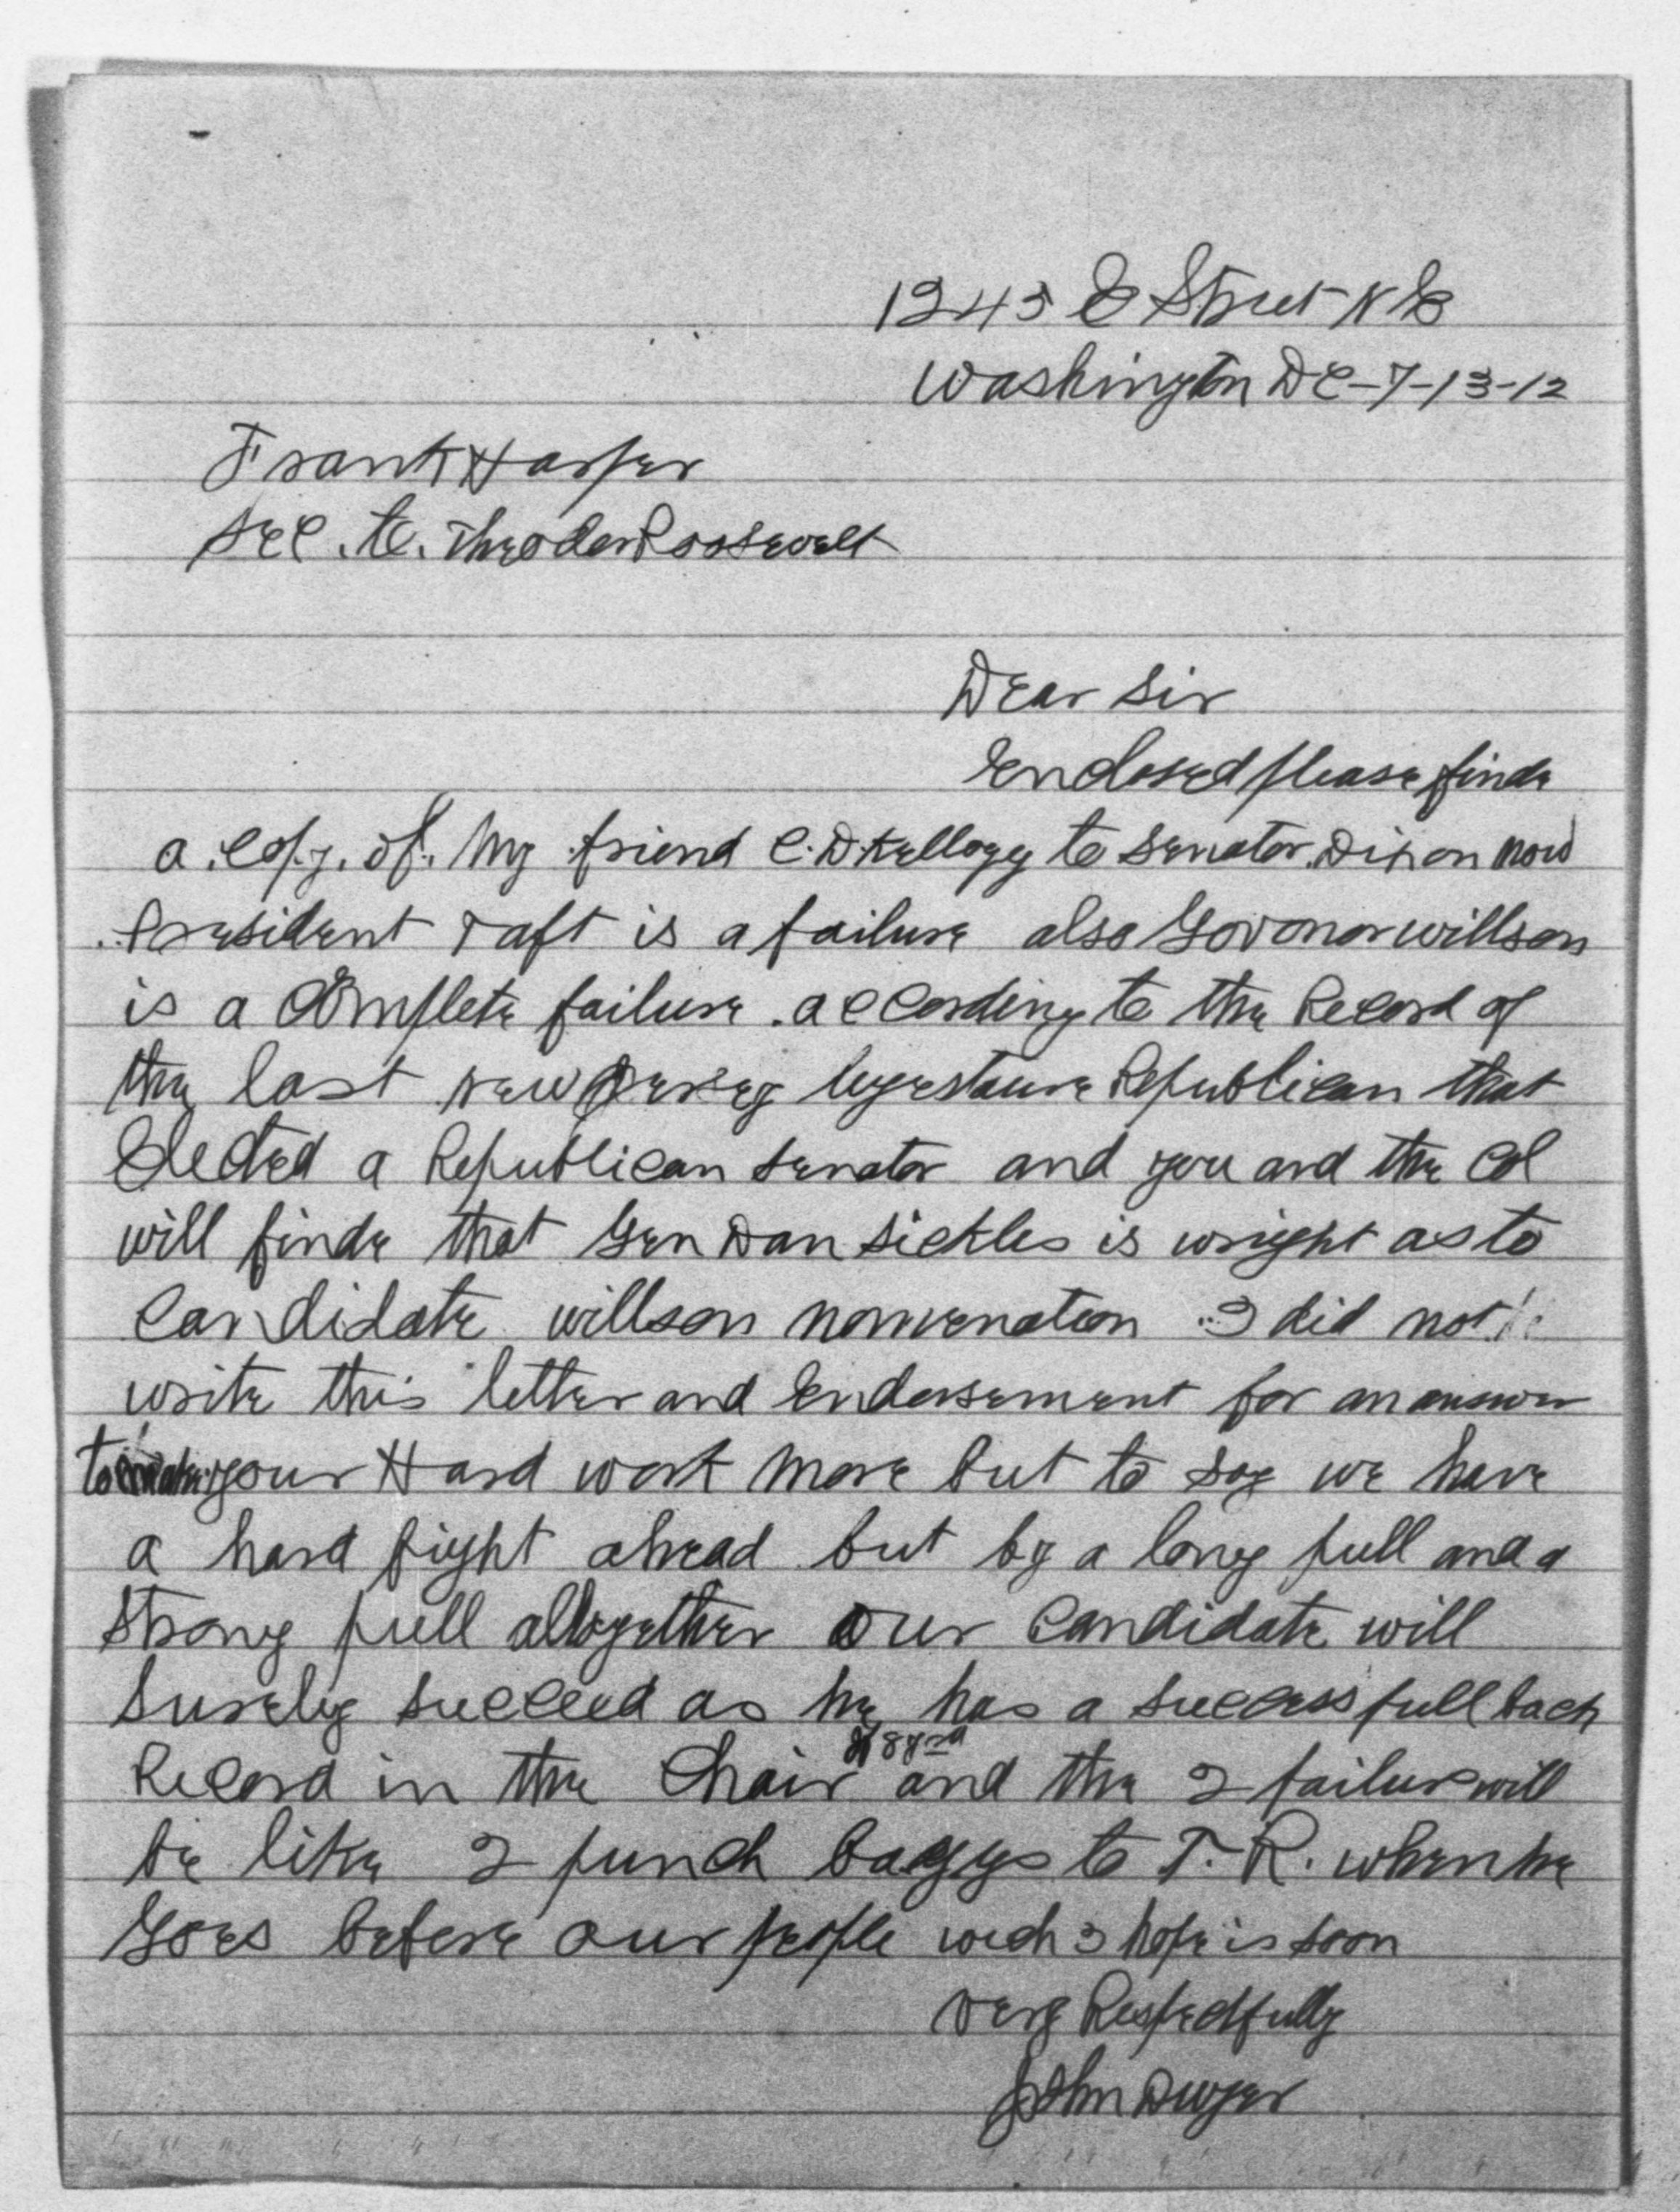 1243 E Street N E
Washington DC-7-13-12
Frank Harper
Sec. to. Theoder Roosevelt
Dear Sir
Enclosed please finde
a. copy. of. My friend C.D Kellogg to Senator. Dixon now
President Taft is a failure also Govonor willson
is a Complete failure. according to the Record of
the last new Jersey legestaure Republican that
Elected a Republican Senator and you and the Col
will finde that Gen Dan Sickles is wright as to
Candidate willson nomenation I did not
write this letter and Endorsement for an answer
to make your Hard work more but to say we have
a hard fight ahead but by a long pull and a
Strong pull altogether our Candidate will
Surely Succeed as he has a successfull back
Record in the Chair and the 2 failure will
be like 2 punch baggs to T. R. when he
Goes before our people wich I hope is soon
very Respectfully
John Dwyer